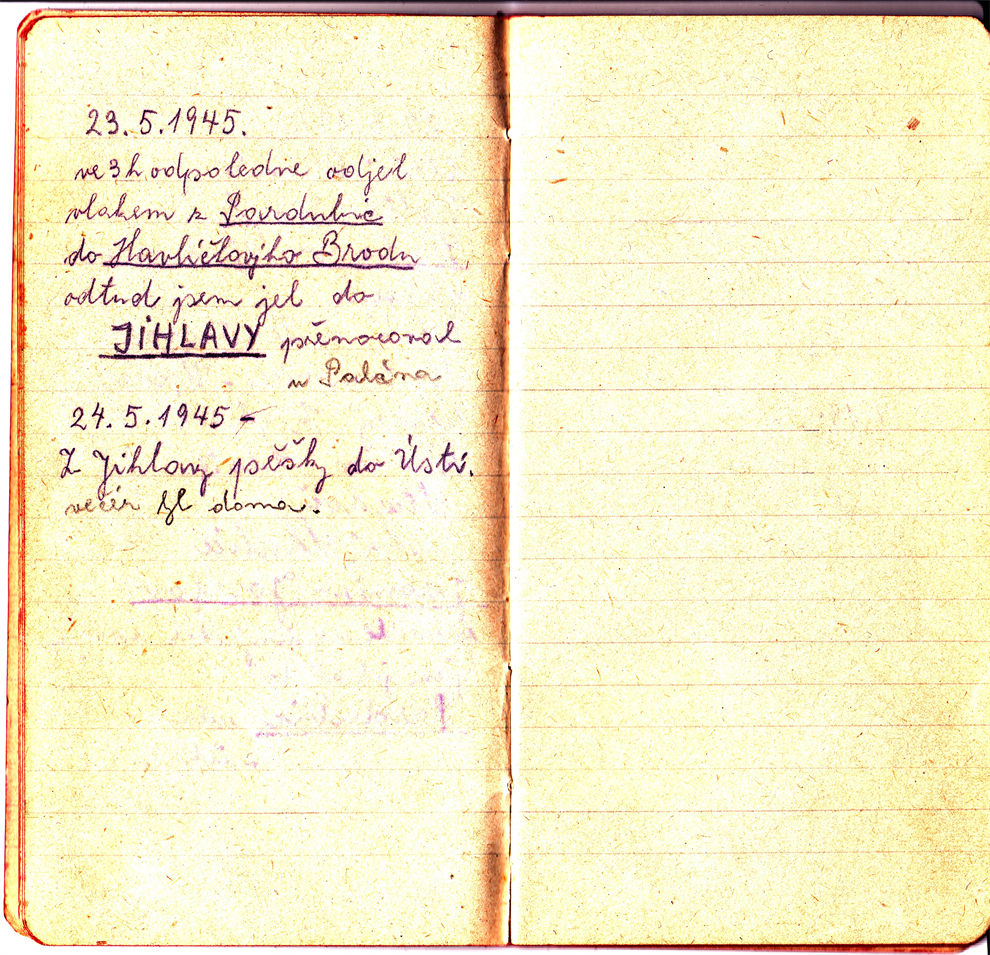 23.5.1945.
ve 3h odpoledne odjel
vlakem z Pardubic
do Havlíčkovýho Brodu
odtud jsem jel do
JIHLAVY přenocoval
u Palána
24.5.1945 -
Z Jihlavy pěšky do Ústí.
večer byl doma.